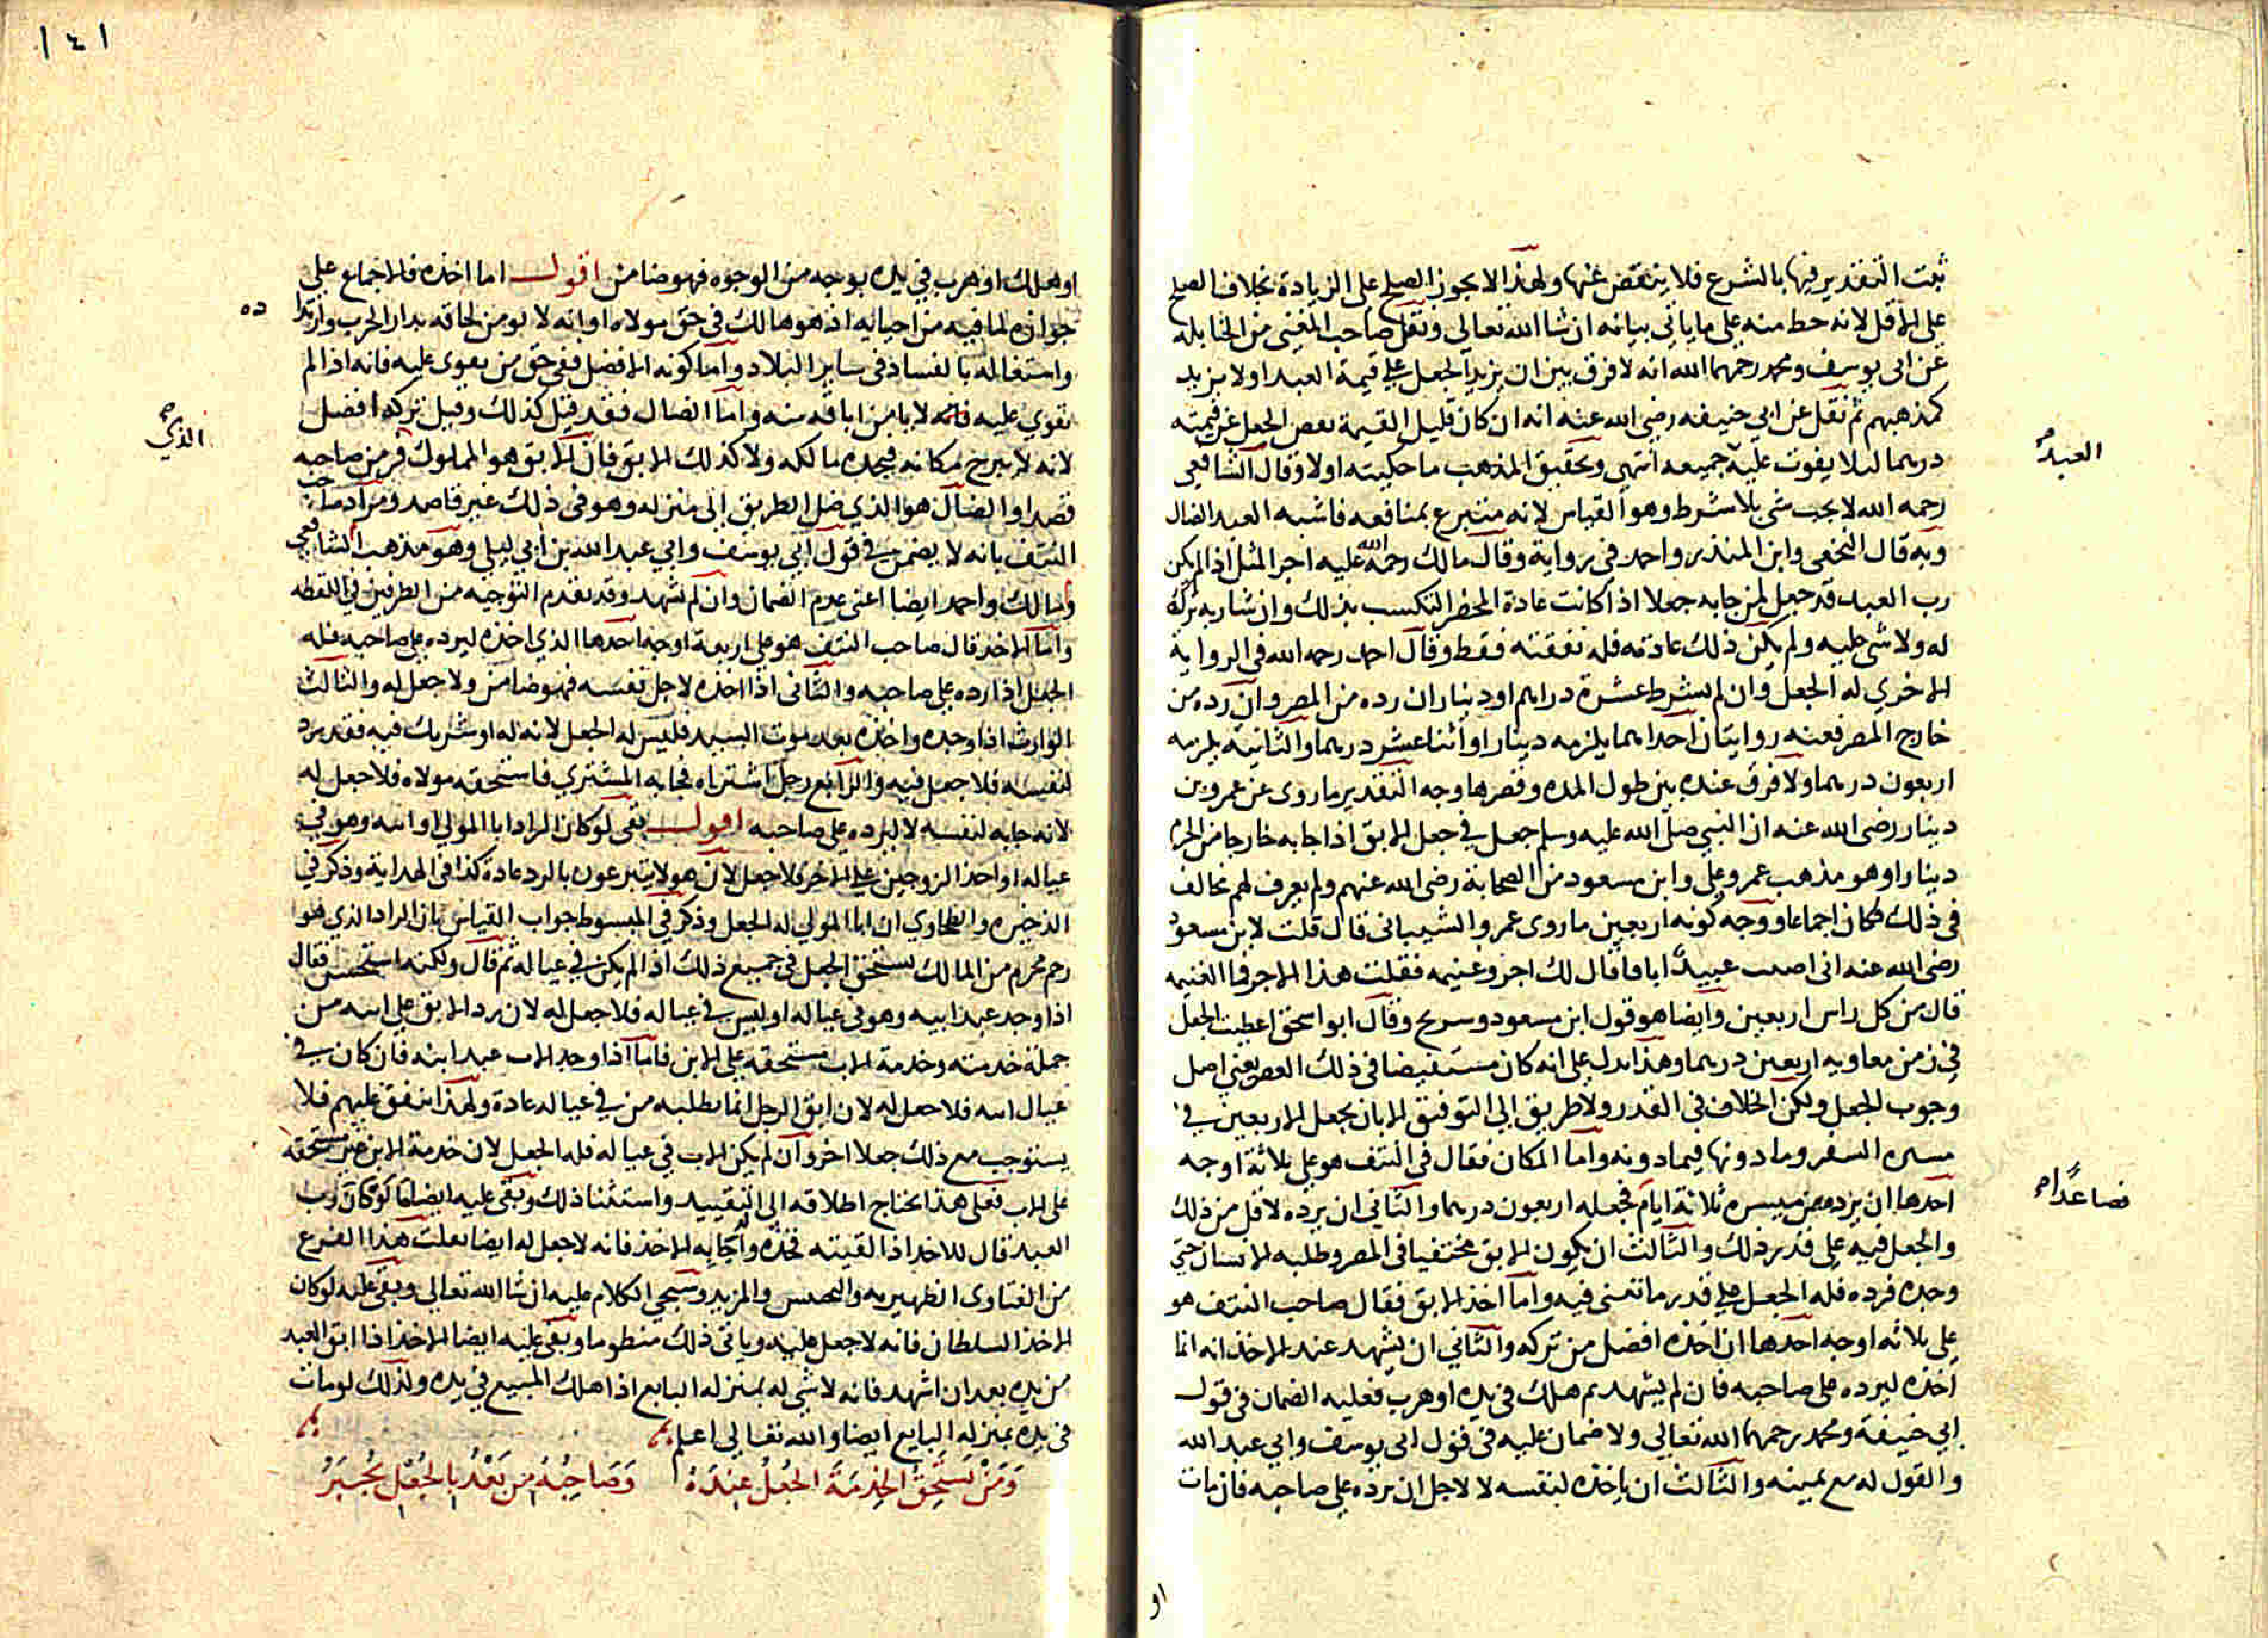 ثبت التقدير فيها بالشرع فلا ينقص عنها ولهذا لا يجوز الصلح على الزيادة بخلاف الصلح
على الاقل لانه حط منه على ما ياتي بيانه ان شا الله تعالى ونقل صاحب المغني من الحنابله
عن ابي يوسف ومحمد رحمهما الله انه لا فرق بين ان يزيد الجعل على قيمة العبد او لا يزيد
كمذهبهم ثم نقل عن ابي حنيفه رضي الله عنه انه ان كان قليل القيمة نقص الجعل عن قيمته
درهما ليلا يفوت عليه جميعه انتهى وتحقيق المذهب ما حكيته اولا وقال الشافعي
العبد
رحمه الله لا يجب شي بلا شرط وهو القياس لانه متبرع بمنافعه فاشبه العبد الضال
وبه قال النخعي وابن المنذر واحمد في رواية وقال مالك رحمة الله عليه اجر المثل اذا لم يكن
رب العبد قد جعل لمن جا به جعلا اذا كانت عادة المحضر التكسب بذلك وان شا ربه تركه
له ولا شي عليه ولم يكن ذلك عادته فله نفقته فقط وقال احمد رحمه الله في الرواية
الاخري له الجعل وان لم يشرط عشرة دراهم او دينار ان رده من المصر وان رده من
خارج المصر فعنه روايتان احداهما يلزمه دينار او اثنا عشر درهما والثانية يلزمه
اربعون درهما ولا فرق عنده بين طول المده وقصرها وجه التقدير ما روى عن عمرو بن
دينار رضي الله عنه ان النبي صلى الله عليه وسلم جعل في جعل الابق اذا جا به خارجا من الحرم
دينارا وهو مذهب عمر وعلي وابن مسعود من الصحابة رضي الله عنهم ولم يعرف لهم مخالف
في ذلك فكان اجماعا ووجه كونه اربعين ما روى عمرو الشيباني قال قلت لابن مسعود
رضي الله عنه اني اصبت عبيدا اباقا قال لك اجر وغنيمه فقلت هذا الاجر فما الغنيمه
قال من كل راس اربعين وايضا هو قول ابن مسعود وسريح وقال ابو اسحق اعطيت الجعل
في زمن معاويه اربعين درهما وهذا يدل على انه كان مستفيضا في ذلك العصر يعني اصل
وجوب الجعل ولكن الخلاف في القدر ولا طريق الى التوفيق الا بان يجعل الاربعين في
مسيره السفر وما دونها فيما دونه واما المكان فقال في النتف هو على ثلاثة اوجه
احدها ان يرده من مسيره ثلاثة ايام فجعله اربعون درهما والثاني ان يرده لاقل من ذلك
فصاعدا
والجعل فيه على قدر ذلك والثالث ان يكون الابق مختفيا في المصر وطلبه الانسان حتى
وجده فرده فله الجعل على قدر ما تعنى فيه واما اخذ الابق فقال صاحب النتف هو
على ثلاثه اوجه احدها ان اخذه افضل من تركه والثاني ان يشهد عند الاخذ انه انما
اخذه ليرده على صاحبه فان لم يشهد ثم هلك في يده او هرب فعليه الضمان في قول
ابي حنيفة ومحمد رحمهما الله تعالى ولا ضمان عليه في قول ابي يوسف وابي عبد الله
والقول له مع يمينه والثالث ان ياخذه لنفسه لا لاجل ان يرده على صاحبه فان مات
او
١٤١
او هلك او هرب في يده بوجه من الوجوه فهو ضامن اقول اما اخذه فالاجماع على
جوازه لما فيه من احيائه اذ هو هالك في حق مولاه او انه لا يومن لحاقه بدار الحرب وارتدا
ده
واستغاله بالفساد في ساير البلاد واما كونه الافضل ففي حق من يقوى عليه فانه اذا لم
يقوي عليه فانه لا يامن اباقه منه واما الضال فقد قيل كذلك وقيل تركه افضل
الذي
لانه لا يبرح مكانه فيجده مالكه ولا كذلك الابق فان الابق هو المملوك فر من صاحبه
قصدا والضال هو الذي ضل الطريق الى منزله وهو في ذلك غير قاصد ومراد صاحب
النتف بانه لا يضمن في قول ابي يوسف وابي عبد الله بن ابي ليلى وهو مذهب الشافعي
ومالك واحمد ايضا اعني عدم الضمان وان لم يشهد وقد تقدم التوجيه من الطرفين في اللقطه
واما الاخذ قال صاحب النتف هو على اربعة اوجه احدها الذي اخذه ليرده على صاحبه فله
الجعل اذا رده على صاحبه والثاني اذا اخذه لاجل نفسه فهو ضامن ولا جعل له والثالث
الوارث اذا وجده واخذه بعد موت السيد فليس له الجعل لانه له او شريك فيه فقد يرد
لنفسه فلا جعل فيه والرابع رجل اشتراه فجا به المشتري فاستحقه مولاه فلا جعل له
لانه جا به لنفسه لا ليرده على صاحبه اقول بقي لو كان الراد ابا المولي او ابنه وهو في
عياله او احد الزوجين على الاخر فلا جعل لان هولا يتبرعون بالرد عادة كذا في الهداية وذكر في
الذخيره والطحاوي ان ابا المولي له الجعل وذكر في المبسوط جواب القياس بان الراد الذي هو
رحم محرم من المالك يستحق الجعل في جميع ذلك اذا لم يكن في عياله ثم قال ولكنه استحسن فقال
اذا وجد عبد ابيه وهو في عياله او ليس في عياله فلا جعل له لان رد الابق على ابيه من
جملة خدمته وخدمة الاب مستحقه على الابن فاما اذا وجد الاب عبد ابنه فان كان في
عيال ابنه فلا جعل له لان ابق الرجل انما يطلبه من في عياله عادة ولهذا ينفق عليهم فلا
يستوجب مع ذلك جعلا اخر وان لم يكن الاب في عياله فله الجعل لان خدمة الابن غير مستحقه
على الاب فعلى هذا يحتاج اطلاقه الى التقييد واستثنا ذلك وبقي عليه ايضا ما لو كان رب
العبد قال للاخذ اذا لقيته فخذه واجابه الاخذ فانه لا جعل له ايضا نقلت هذا الفرع
من الفتاوى الظهيريه والتجنيس والمزيد وسيجي الكلام عليه ان شا الله تعالى وبقي عليه لو كان
الاخذ السلطان فانه لا جعل عليه وياتي ذلك منظوما وبقي عليه ايضا الاخذ اذا ابق العبد
من يده بعد ان اشهد فانه لا شي له بمنزله البايع اذا هلك المبيع في يده ولذلك لو مات
في يده بمنزله البايع ايضا والله تعالى اعلم
وَمَنْ يَسْتَحِقُ الخِدمَةَ الجُعْلُ عِندَهُ وَصَاحِبُهُ مِن بَعْدُ بِالجُعْلِ يُجْبَرُ